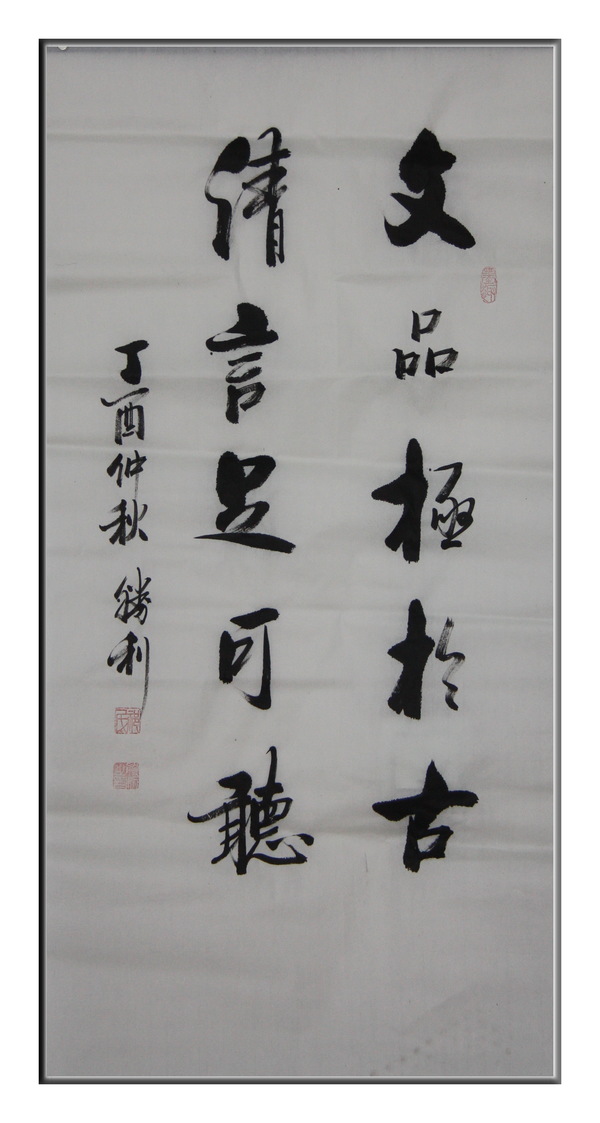 文品極於古
倩言足可聽
丁酉仲秋 勝利